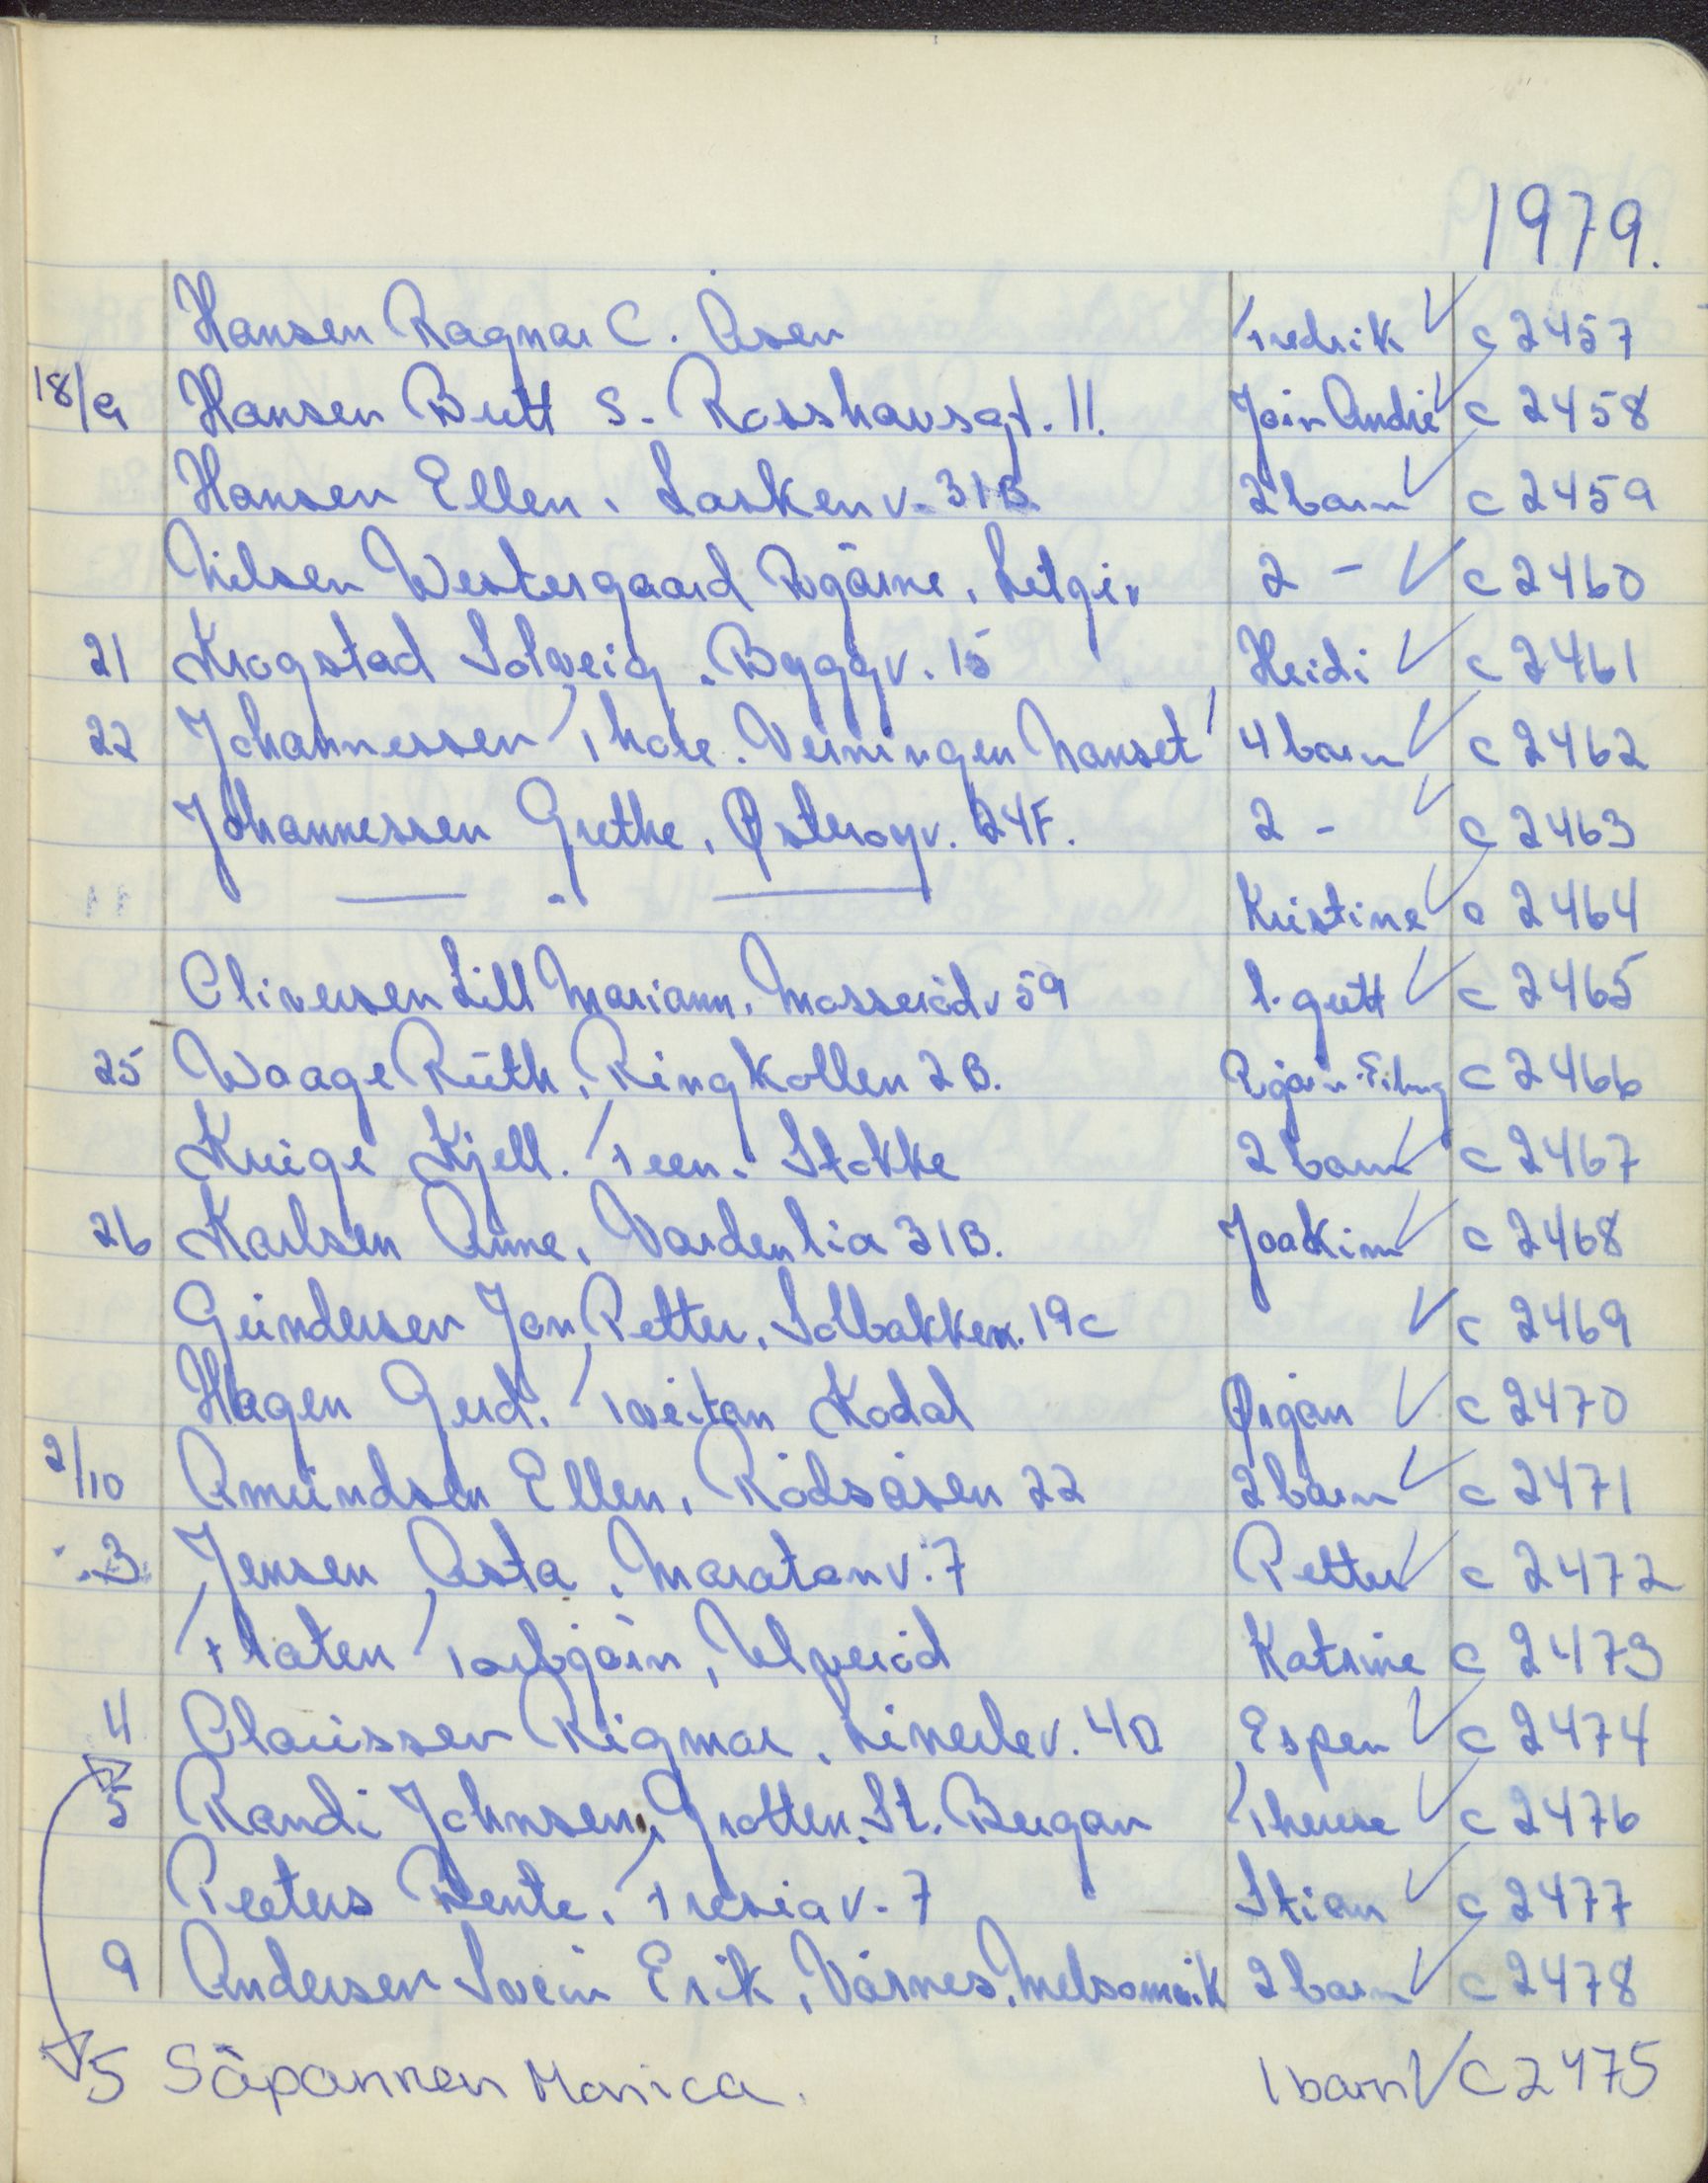 1979.
Hansen Ragnar C. Åsen Fredrik ✓ c 2457
18/9 Hansen Britt S. Rosshavsgt. 11. Jörn André ✓ c 2458
Hansen Ellen, Laskenv. 31B 2 barn ✓ c 2459
Nilsen Westergaard Bjärne, Helgev 2 - ✓ c 2460
21 Krogstad Solveig, Byggv. 15 Heidi ✓ c 2461
22 Johannessen Thore. Verningen Nanset 4 barn ✓ c 2462
Johannessen Grethe, Østerøyv. 24F. 2 - ✓ c 2463
— " — Kristine ✓ c 2464
Oliversen Lill Mariann, Mosserödv 59 l. gutt ✓ c 2465
25 Waage Ruth, Ringkollen 2B. c 2466
Krüge Kjell. Feen. Stokke 2 barn ✓ c 2467
26 Karlsen Anne, Vardenlia 31B. Joakim ✓ c 2468
Gundersen Jan Petter, Solbakken. 19c ✓ c 2469
Hagen Gerd, Tveitan Kodal Ørjan ✓ c 2470
2/10 Amundsen Ellen, Rödsåsen 22 2 barn ✓ c 2471
3 Jensen Asta, Maratonv. 7 Petter ✓ c 2472
Flaten Torbjörn, Ulveröd Katrine c 2473
4 Claussen Rigmor, Linerlev. 4D Espen ✓ c 2474
5 Randi Johnsen, Grotten, St. Bergan Therese ✓ c 2476
Peeters Bente, Fresiav. 7 Stian ✓ c 2477
9 Andersen Svein Erik, Vårnes, Melsomvik 2 barn ✓ c 2478
5 Säpannen Monica. 1 barn ✓ c 2475